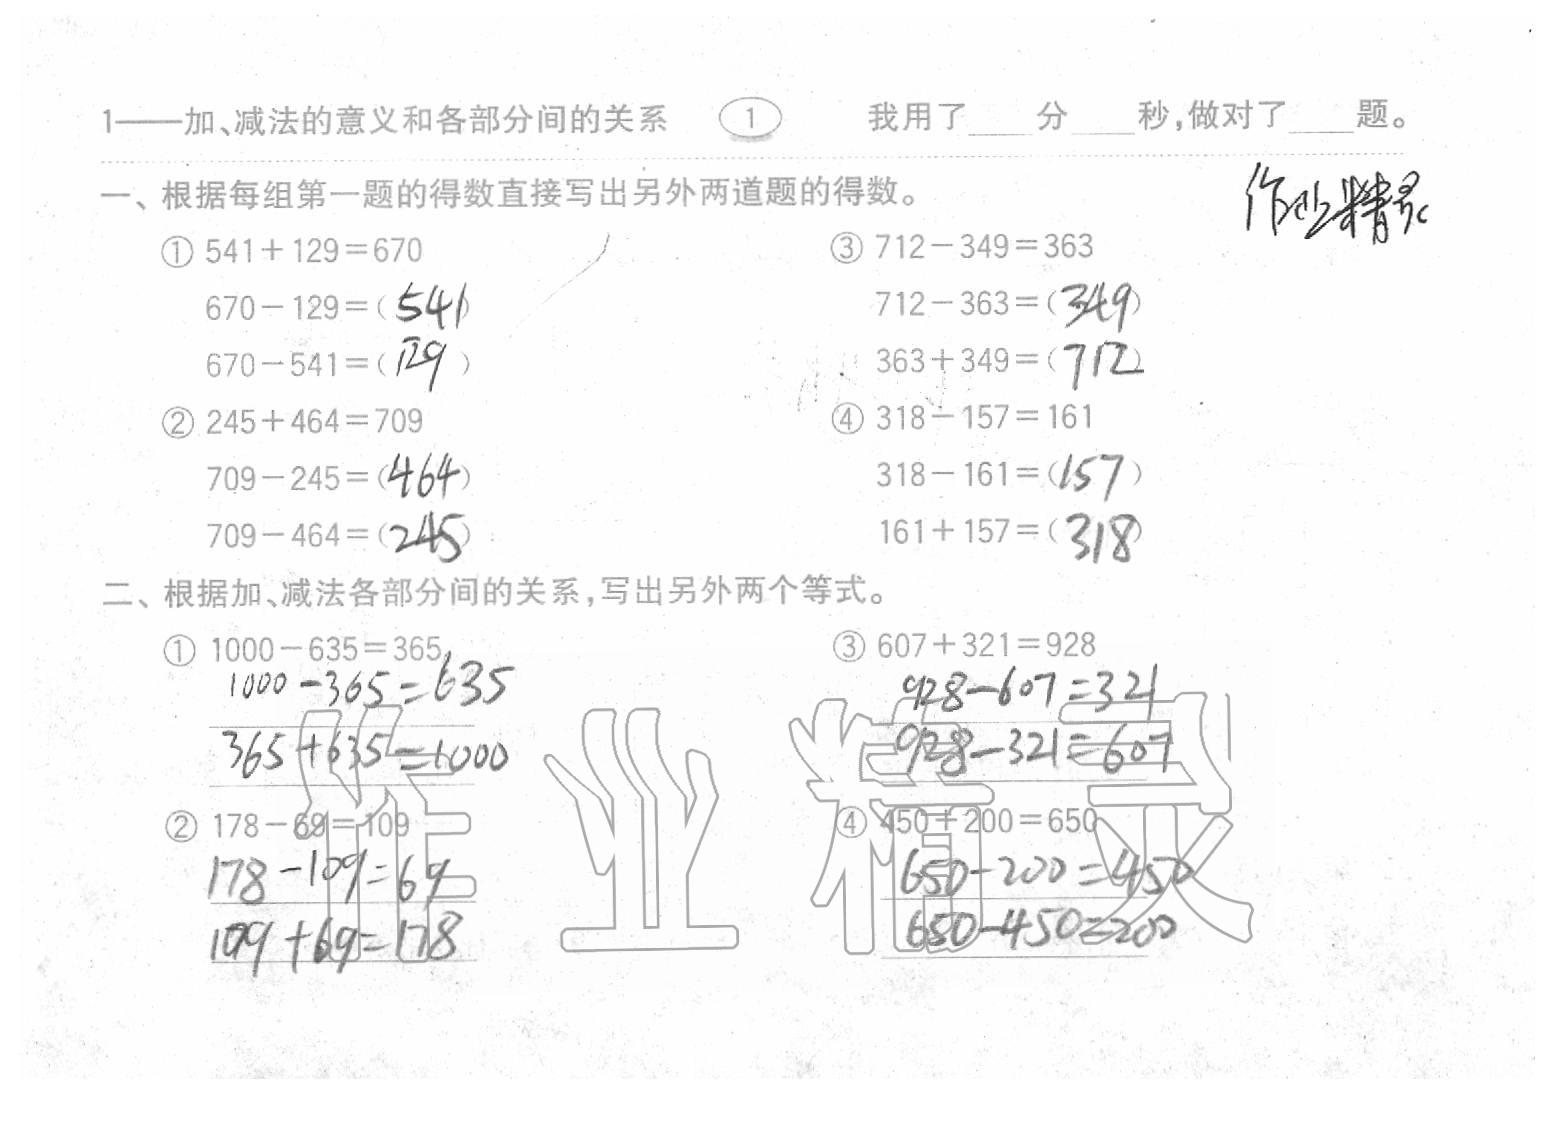 1——加、减法的意义和各部分间的关系 1 我用了____分____秒,做对了____题。
一、根据每组第一题的得数直接写出另外两道题的得数。
作业精灵
① 541+129=670
670-129=(541)
670-541=(129)
② 245+464=709
709-245=(464)
709-464=(245)
③ 712-349=363
712-363=(349)
363+349=(712)
④ 318-157=161
318-161=(157)
161+157=(318)
二、根据加、减法各部分间的关系,写出另外两个等式。
① 1000-635=365
1000-365=635
365+635=1000
② 178-69=109
178-109=69
109+69=178
③ 607+321=928
928-607=321
928-321=607
④ 450+200=650
650-200=450
650-450=200
作业精灵